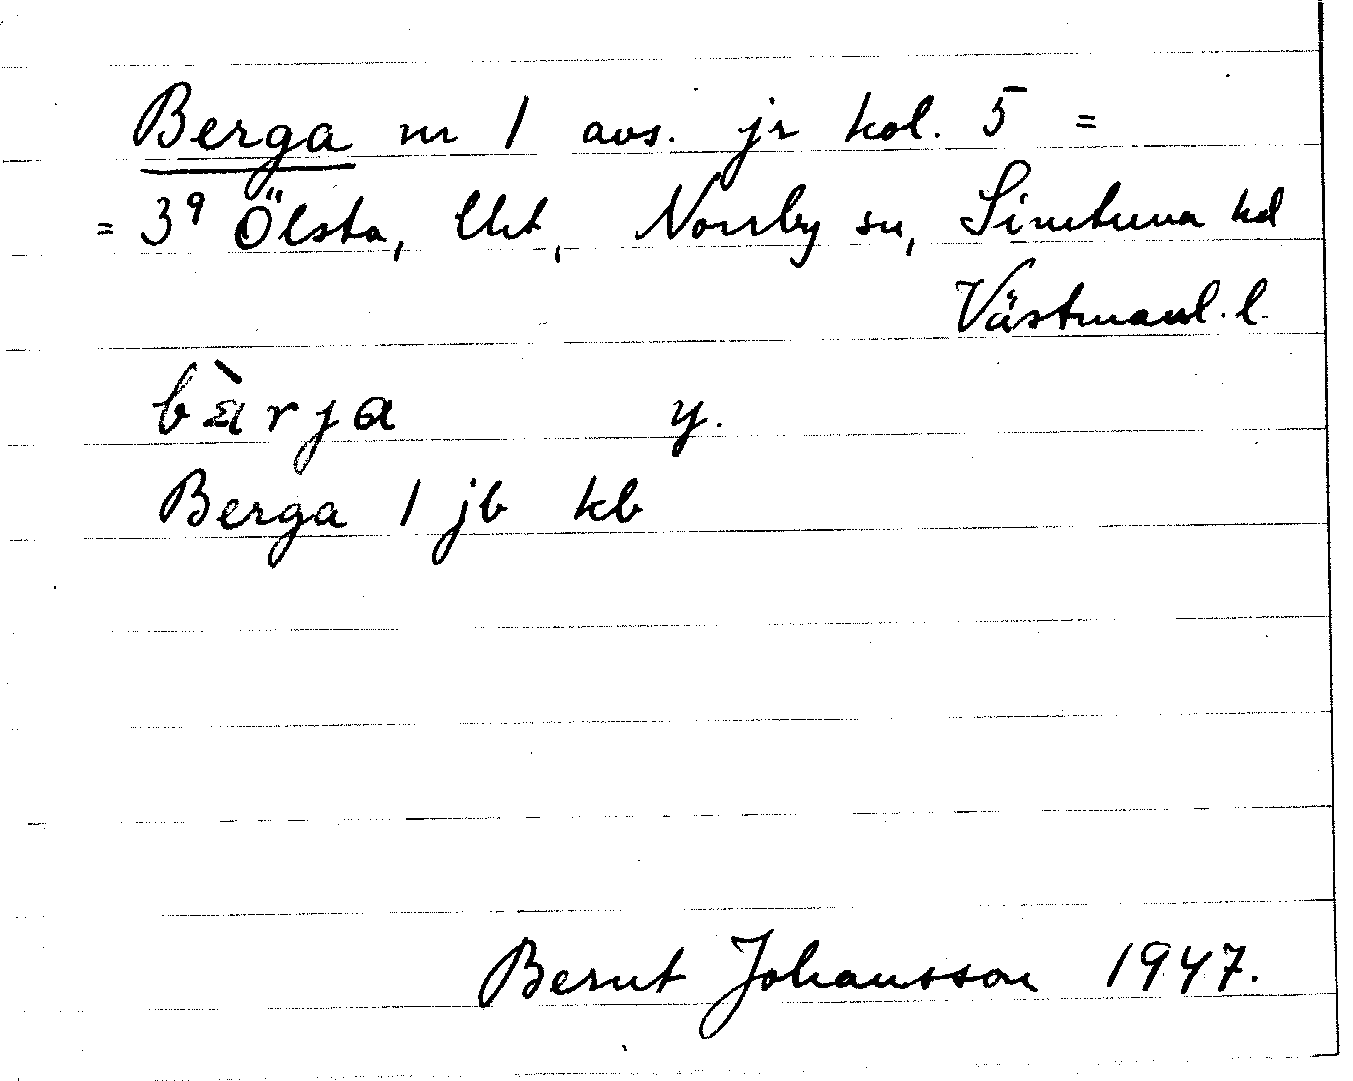 Berga nr 1 avs. jr kol. 5 =
= 3⁹ Ölsta, Ukt, Norrby sn, Simtuna hd
Västmanl. l.
bàrja y.
Berga 1 jb kb
Bernt Johansson 1947.